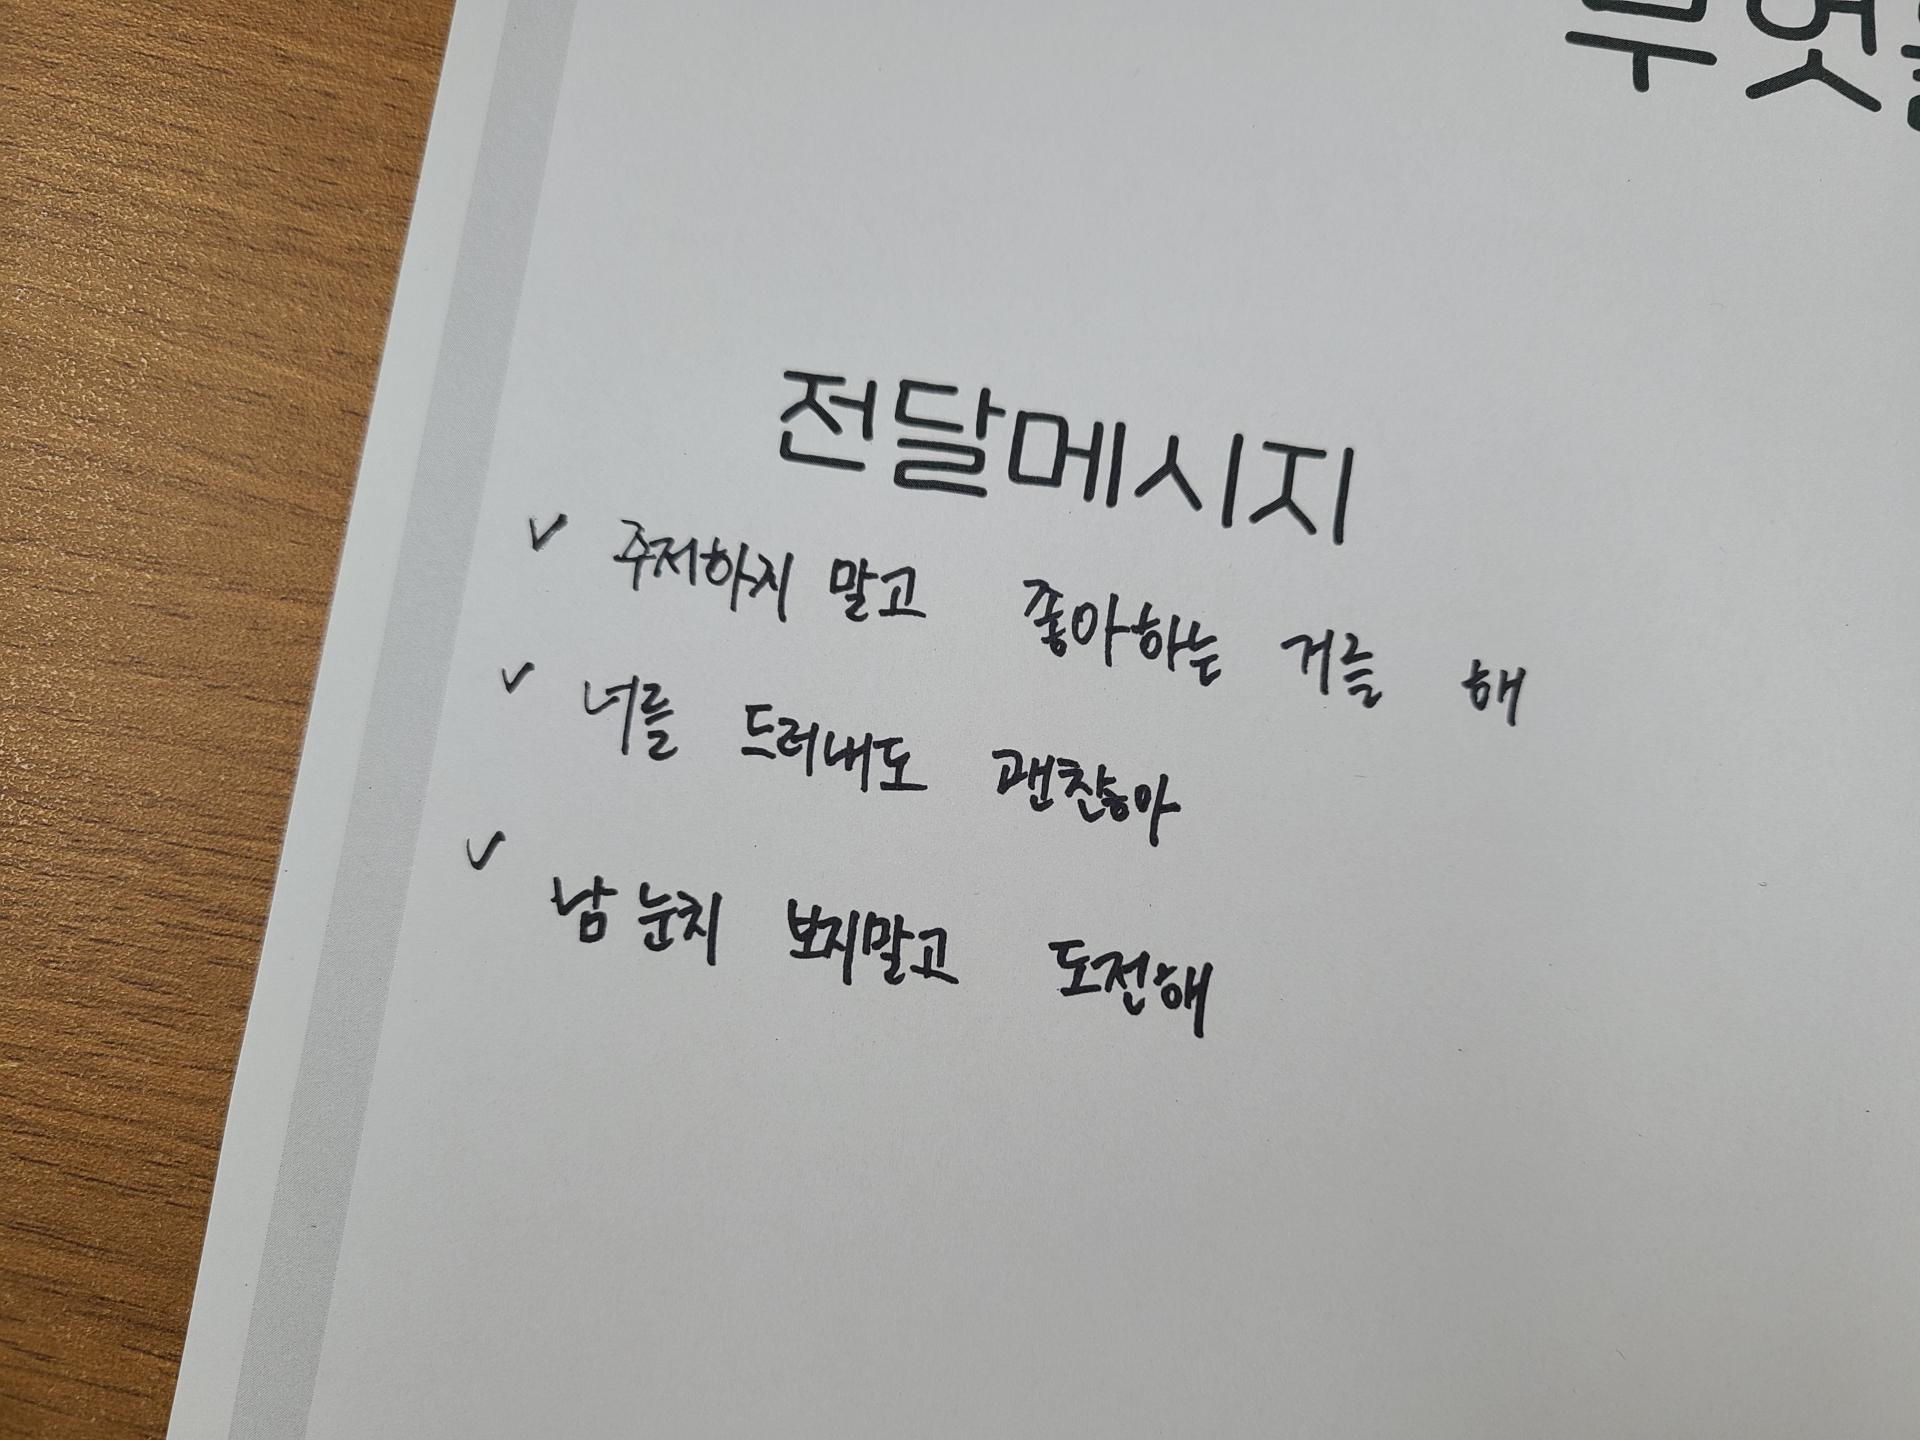 무엇을
전달메시지
✓ 주저하지 말고 좋아하는 거를 해
✓ 너를 드러내도 괜찮아
✓ 남 눈치 보지말고 도전해